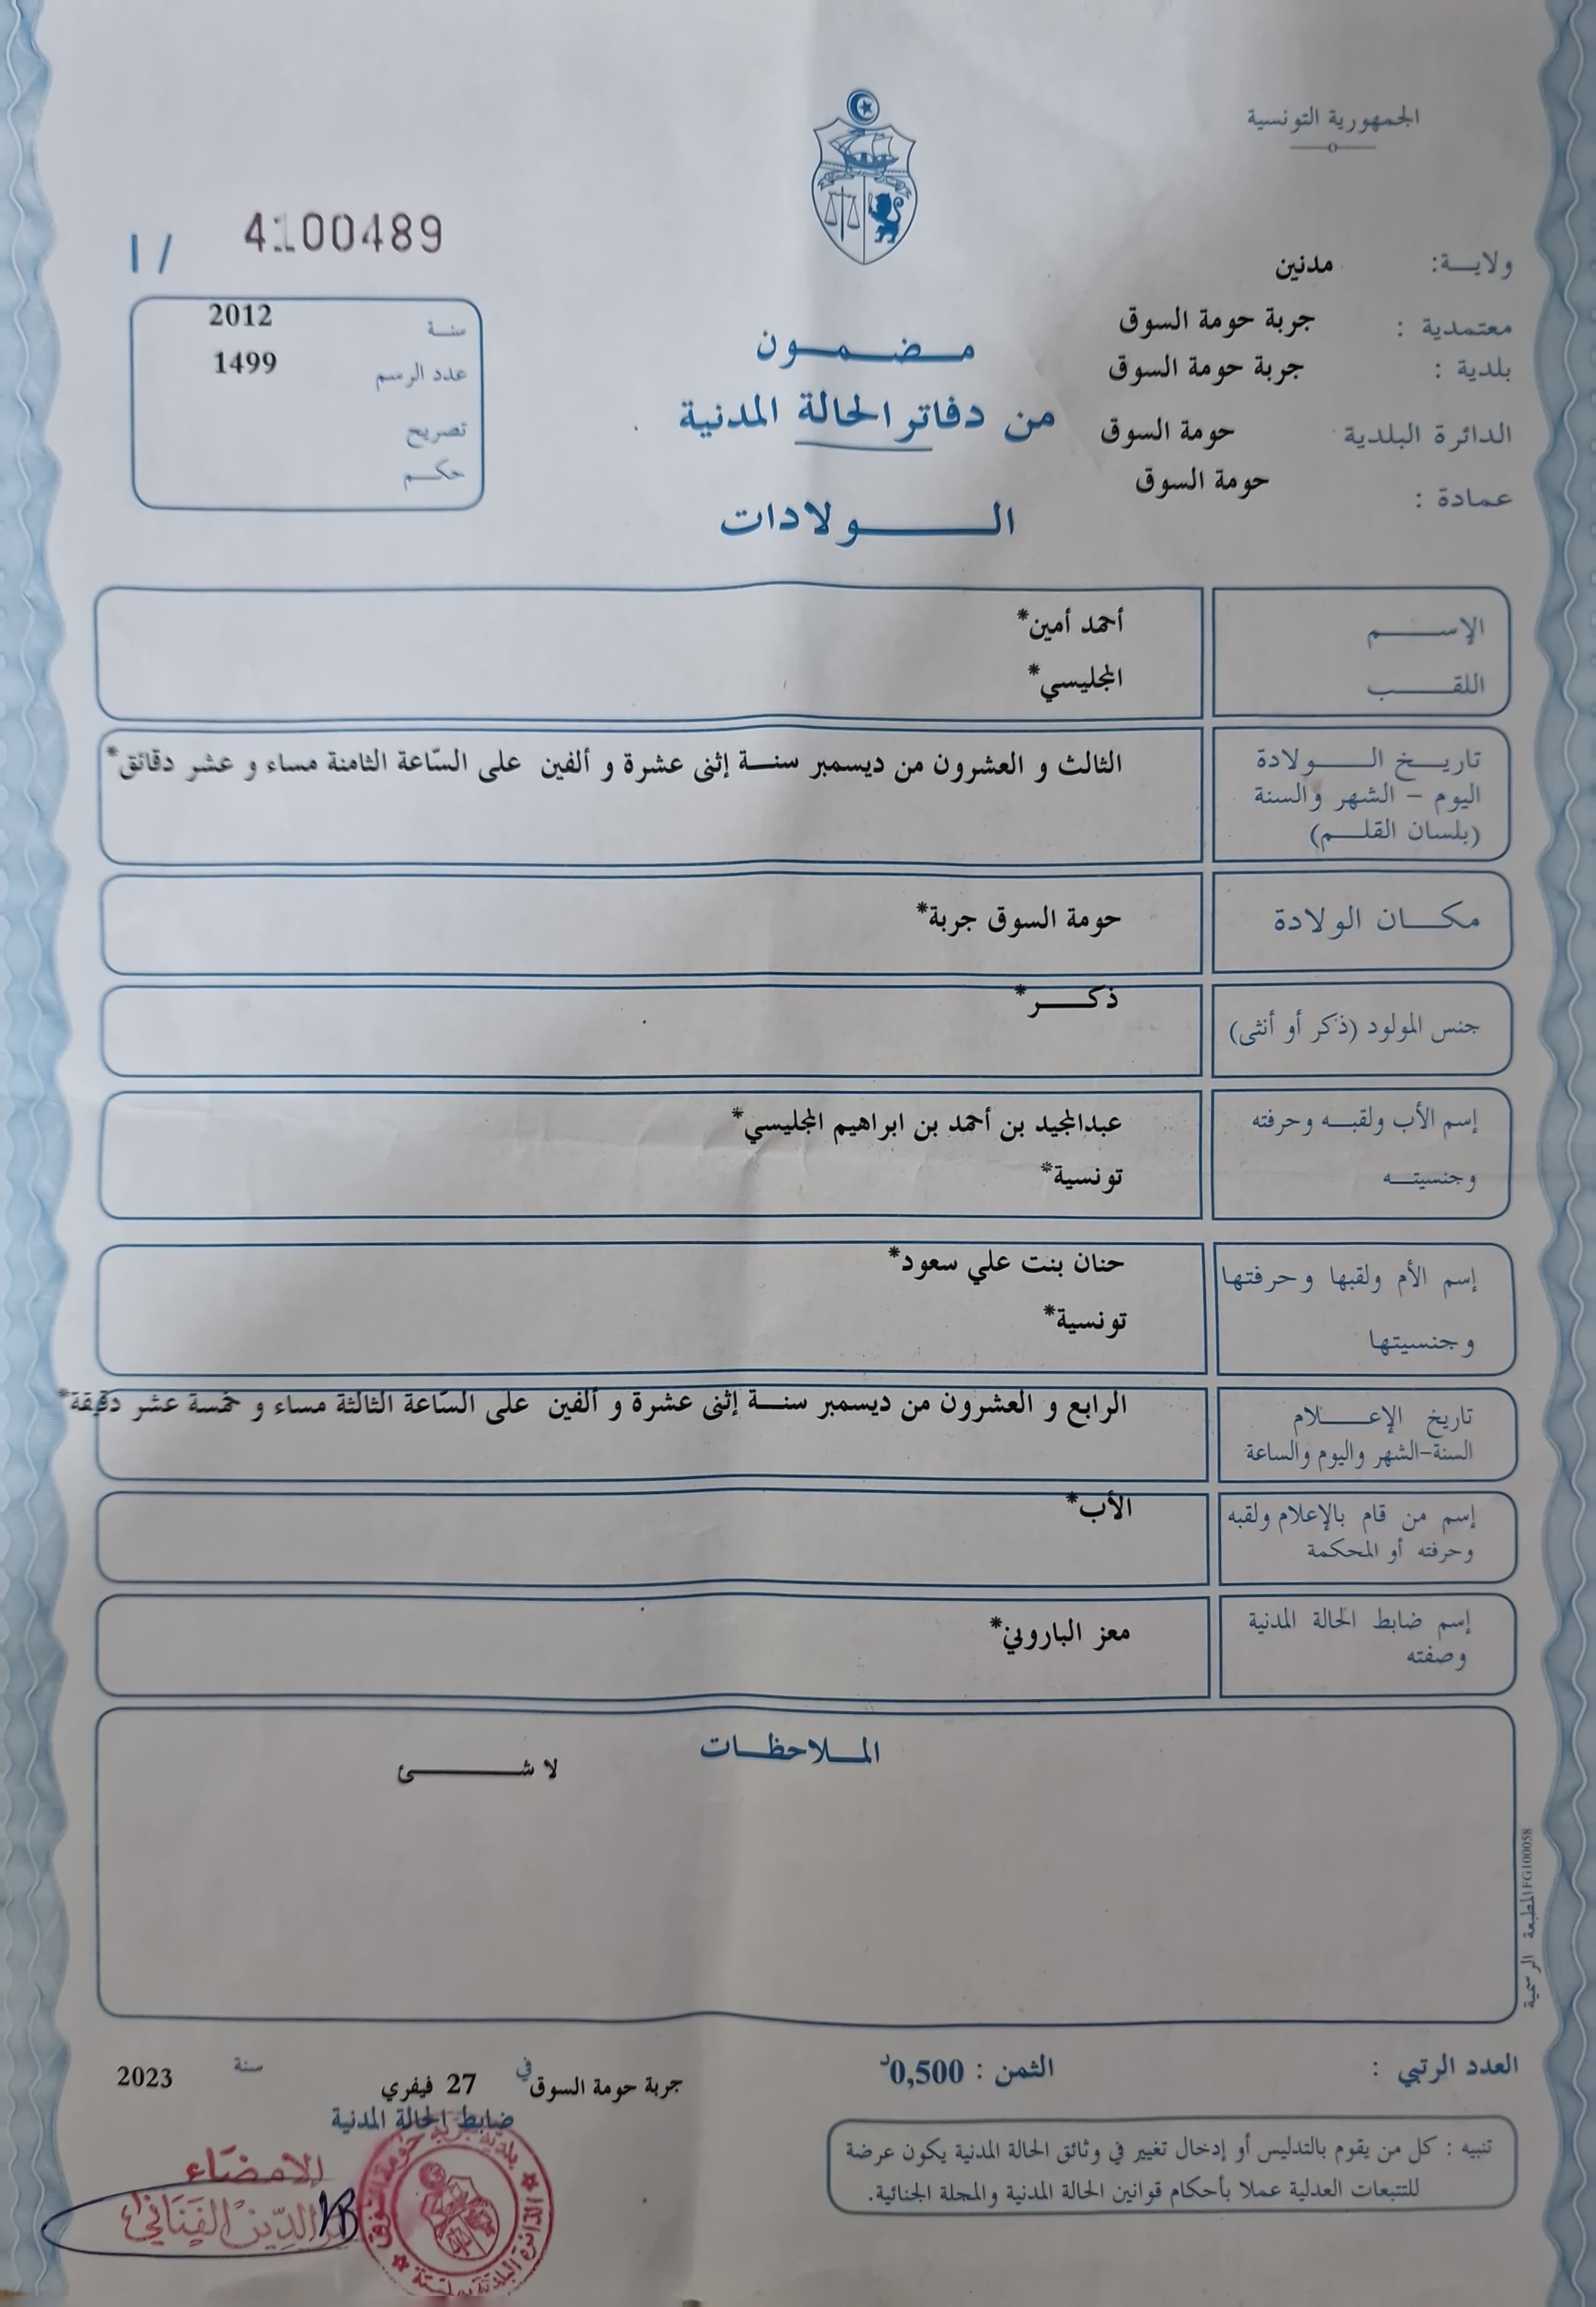 الجمهورية التونسية
ولايـــة: مدنين
معتمدية : جربة حومة السوق
بلدية : جربة حومة السوق
الدائرة البلدية حومة السوق
عمادة : حومة السوق
مـضـمـون
من دفاتر الحالة المدنية
الـــولادات
4100489
/ I
سنـة 2012
عدد الرسم 1499
تصريح
حكـم
الإســـم أحمد أمين*
اللقـــب المجليسي*
تاريـــخ الـــولادة
اليوم – الشهر والسنة
(بلسان القلـــم)
الثالث و العشرون من ديسمبر سنـــة إثنى عشرة و ألفين على السّاعة الثامنة مساء و عشر دقائق*
مكـــان الولادة حومة السوق جربة*
جنس المولود (ذكر أو أنثى) ذكـــر*
إسم الأب ولقبـــه وحرفته عبدالمجيد بن أحمد بن ابراهيم المجليسي*
وجنسيتـــه تونسية*
إسم الأم ولقبها وحرفتها حنان بنت علي سعود*
وجنسيتها تونسية*
تاريخ الإعـــلام
السنة-الشهر واليوم والساعة
الرابع و العشرون من ديسمبر سنـــة إثنى عشرة و ألفين على السّاعة الثالثة مساء و خمسة عشر دقيقة*
إسم من قام بالإعلام ولقبه
وحرفته أو المحكمة
الأب*
إسم ضابط الحالة المدنية
وصفته
معز الباروني*
المـــلاحظـــات
لا شـــئ
المطبعة الرسمية IFG100058
العدد الرتبي :
الثمن : 0,500د
جربة حومة السوق في 27 فيفري سنة 2023
ضابط الحالة المدنية
تنبيه : كل من يقوم بالتدليس أو إدخال تغيير في وثائق الحالة المدنية يكون عرضة
للتتبعات العدلية عملا بأحكام قوانين الحالة المدنية والمجلة الجنائية.
الامضاء
الدّين الفيناني
بلدية جربة حومة السوق
الدائرة البلدية